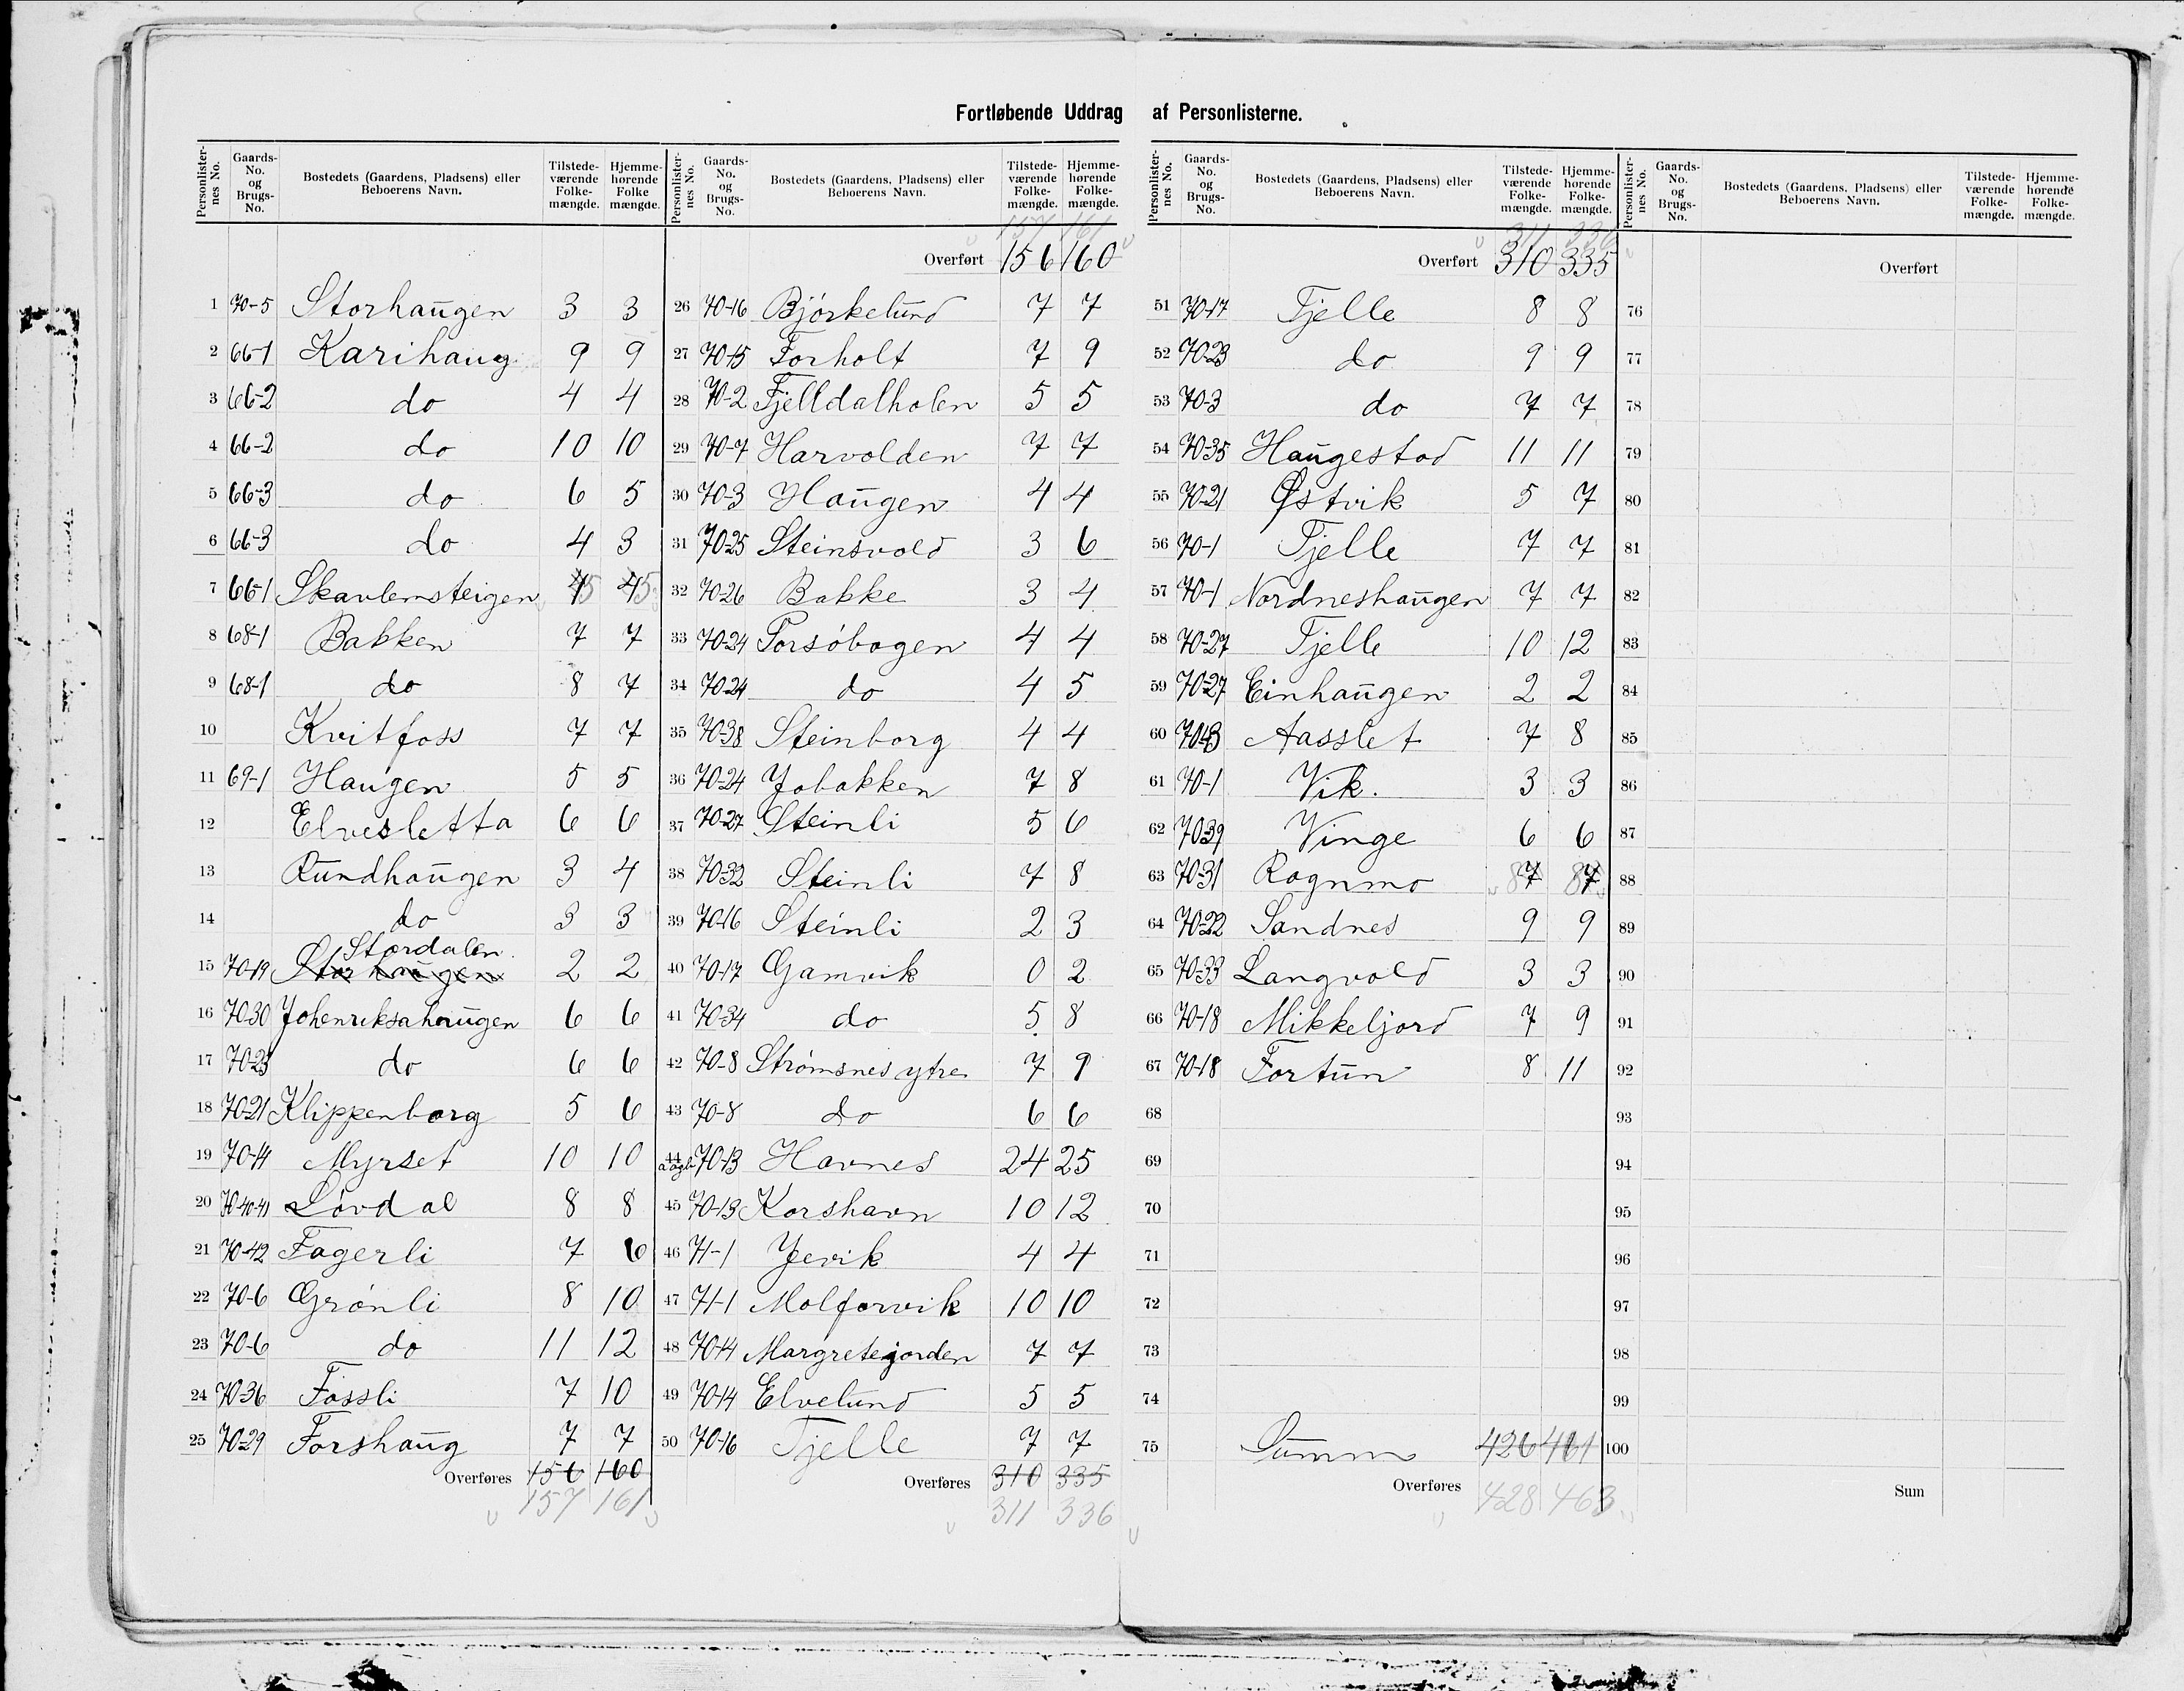 Fortløbende Uddrag af Personlisterne.
Personlisternes No. | Gaards-No. og Brugs-No. | Bostedets (Gaardens, Pladsens) eller Beboerens Navn. | Tilstedeværende Folkemængde. | Hjemmehørende Folkemængde.
1 70-5 Storhaugen 3 3
2 66-1 Karihaug 9 9
3 66-2 do 4 4
4 66-2 do 10 10
5 66-3 do 6 5
6 66-3 do 4 3
7 66-1 Skavlemsteigen 4 5 4 5
8 68-1 Bakken 7 7
9 68-1 do 8 7
10 Kvitfoss 7 7
11 69-1 Haugen 5 5
12 Elvesletta 6 6
13 Rundhaugen 3 4
14 do 3 3
15 70-19 Storhaugen Stordalen 2 2
16 70-30 Johenriksahaugen 6 6
17 70-23 do 6 6
18 70-21 Klippenborg 5 6
19 70-14 Myrset 10 10
20 70-40-41 Løvdal 8 8
21 70-42 Fagerli 7 6
22 70-6 Grønli 8 10
23 70-6 do 11 12
24 70-36 Fossli 7 10
25 70-29 Forshaug 7 7
Overføres 156 160
157 161
Personlisternes No. | Gaards-No. og Brugs-No. | Bostedets (Gaardens, Pladsens) eller Beboerens Navn. | Tilstedeværende Folkemængde. | Hjemmehørende Folkemængde.
157 161
Overført 156 160
26 70-16 Bjørkelund 7 7
27 70-15 Forholt 7 9
28 70-2 Fjelldalholen 5 5
29 70-7 Harvolden 7 7
30 70-3 Haugen 4 4
31 70-25 Steinsvold 3 6
32 70-26 Bakke 3 4
33 70-24 Forsøbogen 4 4
34 70-24 do 4 5
35 70-38 Steinborg 4 4
36 70-24 Jobakken 7 8
37 70-27 Steinli 5 6
38 70-32 Steinli 7 8
39 70-16 Steinli 2 3
40 70-17 Gamvik 0 2
41 70-34 do 5 8
42 70-8 Strømsnes ytre 7 9
43 70-8 do 6 6
44 a og b 70-13 Havnes 24 25
45 70-13 Korshavn 10 12
46 71-1 Jevik 4 4
47 71-1 Molforvik 10 10
48 70-14 Margretejorden 7 7
49 70-14 Elvelund 5 5
50 70-16 Tjelle 7 7
Overføres 310 335
311 336
Personlisternes No. | Gaards-No. og Brugs-No. | Bostedets (Gaardens, Pladsens) eller Beboerens Navn. | Tilstedeværende Folkemængde. | Hjemmehørende Folkemængde.
311 336
Overført 310 335
51 70-17 Tjelle 8 8
52 70-23 do 9 9
53 70-3 do 7 7
54 70-35 Haugestad 11 11
55 70-21 Østvik 5 7
56 70-1 Tjelle 7 7
57 70-1 Nordneshaugen 7 7
58 70-27 Tjelle 10 12
59 70-27 Einhaugen 2 2
60 70-43 Aasslet 7 8
61 70-1 Vik. 3 3
62 70-39 Vinge 6 6
63 70-31 Rognmo 8 7 8 7
64 70-22 Sandnes 9 9
65 70-33 Langvold 3 3
66 70-18 Mikkeljord 7 9
67 70-18 Fortun 8 11
68
69
70
71
72
73
74
75 Summ 426 461
Overføres 428 463
Personlisternes No. | Gaards-No. og Brugs-No. | Bostedets (Gaardens, Pladsens) eller Beboerens Navn. | Tilstedeværende Folkemængde. | Hjemmehørende Folkemængde.
Overført
76
77
78
79
80
81
82
83
84
85
86
87
88
89
90
91
92
93
94
95
96
97
98
99
100
Sum